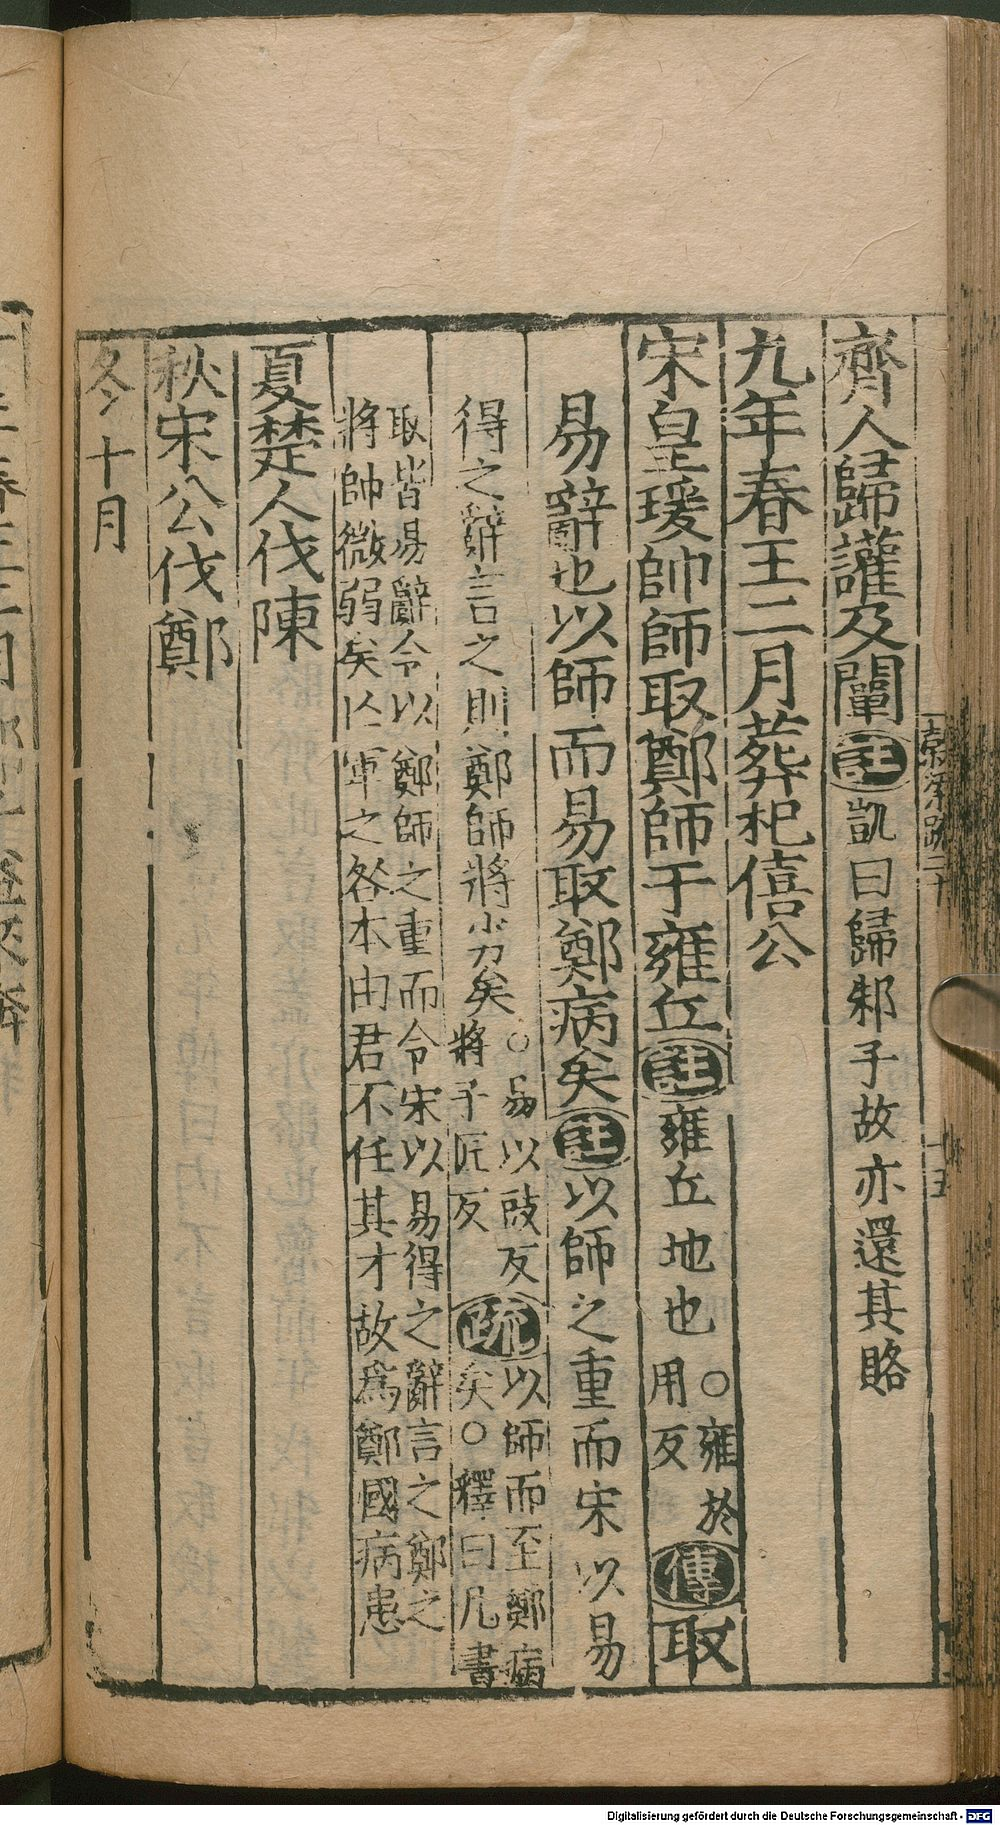 齊人歸讙及闡註凱曰歸邾子故亦還其賂
九年春王二月葬杞僖公
宋皇瑗帥師取鄭師于雍丘註雍丘地也○雍於
用反傳取
易辭也以師而易取鄭病矣註以師之重而宋以易
得之辭言之則鄭師將劣矣○易以豉反
將子匠反疏以師而至鄭病
矣○釋曰凡書
取皆易辭今以鄭師之重而令宋以易得之辭言之鄭之
將帥微弱矣以軍之咎本由君不任其才故為鄭國病患
夏楚人伐陳
秋宋公伐鄭
冬十月
Digitalisierung gefördert durch die Deutsche Forschungsgemeinschaft - DFG